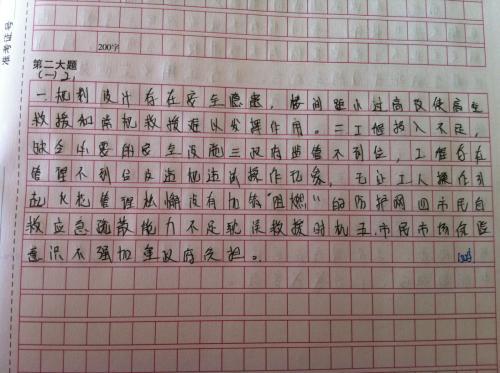 准考证号
200字
第二大题
(一)2、
一.规划设计存在安全隐患,楼间距小过高致使高空
救援和除机救援难以发挥作用。二工程投入不足,
缺乏必要的安全设施三政府监管不到位,工程存在
管理不到位及违规违法操作现象,无证工人操作引
起火花管理松懈没有加装"阻燃"的防护网四市民自
救应急疏散能力不足耽误救援时机五.市民市场保险
意识不强加重政府负担。